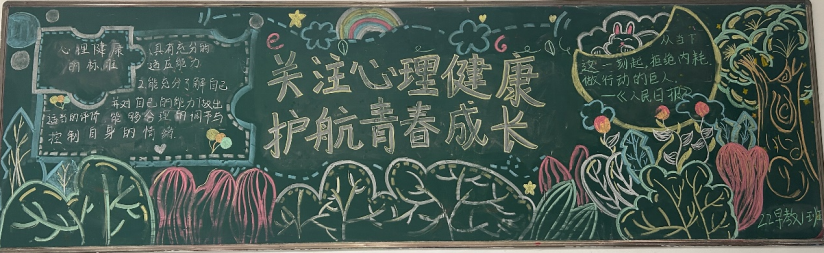 心理健康
的标准
1.具有充分的
适应能力
2.能充分了解自己
并对自己的能力做出
适当的评价 能够合理的调节与
控制自身的情绪
关注心理健康
护航青春成长
从当下
这一刻起,拒绝内耗,
做行动的巨人.
——《人民日报》
22早教1班